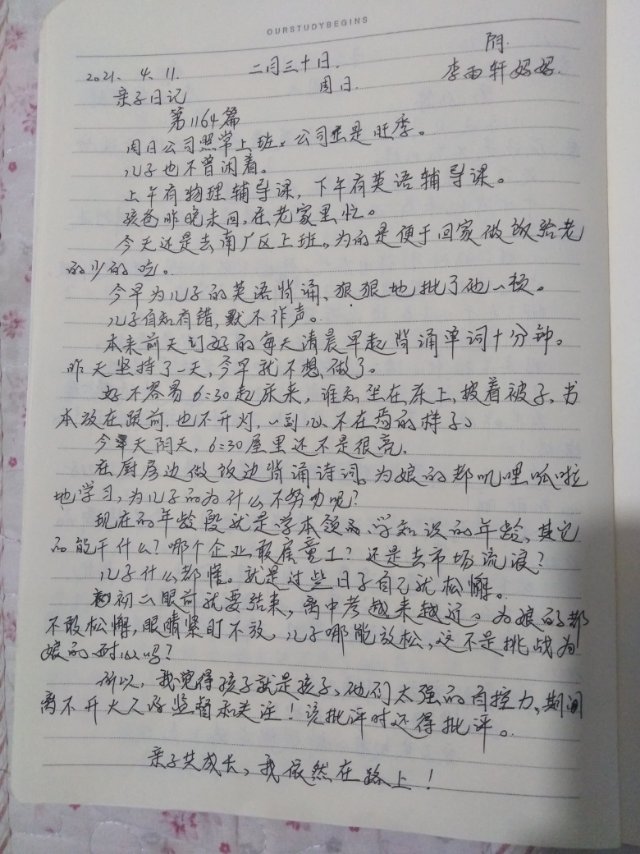 OURSTUDYBEGINS
阴.
2021. 4. 11. 二月三十日. 李雨轩妈妈.
亲子日记 周日.
第1164篇
周日公司照常上班。公司正是旺季。
儿子也不曾闲着。
上午有物理辅导课，下午有英语辅导课。
孩爸昨晚未回，在老家里忙。
今天还是去南厂区上班。为的是便于回家做饭给老
的少的吃。
今早为儿子的英语背诵、狠狠地批了他一顿。
儿子自知有错，默不作声。
本来前天订好的每天清晨早起背诵单词十分钟。
昨天坚持了一天，今早就不想做了。
好不容易6:30起床来，谁知坐在床上，披着被子，书
本放在跟前，也不开灯，一副心不在焉的样子。
今早天阴天，6:30屋里还不是很亮.
在厨房边做饭边背诵诗词。为娘的都叽哩呱啦
地学习，为儿子的为什么不努力呢？
现在的年龄段就是学本领、学知识的年龄，其它
的能干什么？哪个企业敢雇童工？还是去市场流浪？
儿子什么都懂。就是过些日子自己就松懈。
初二眼前就要结束，离中考越来越近。为娘的都
不敢松懈，眼睛紧盯不放，儿子哪能放松，这不是挑战为
娘的耐心吗？
所以，我觉得孩子就是孩子，他们太强的自控力，期间
离不开大人的监督和关注！该批评时还得批评。
亲子共成长，我依然在路上！